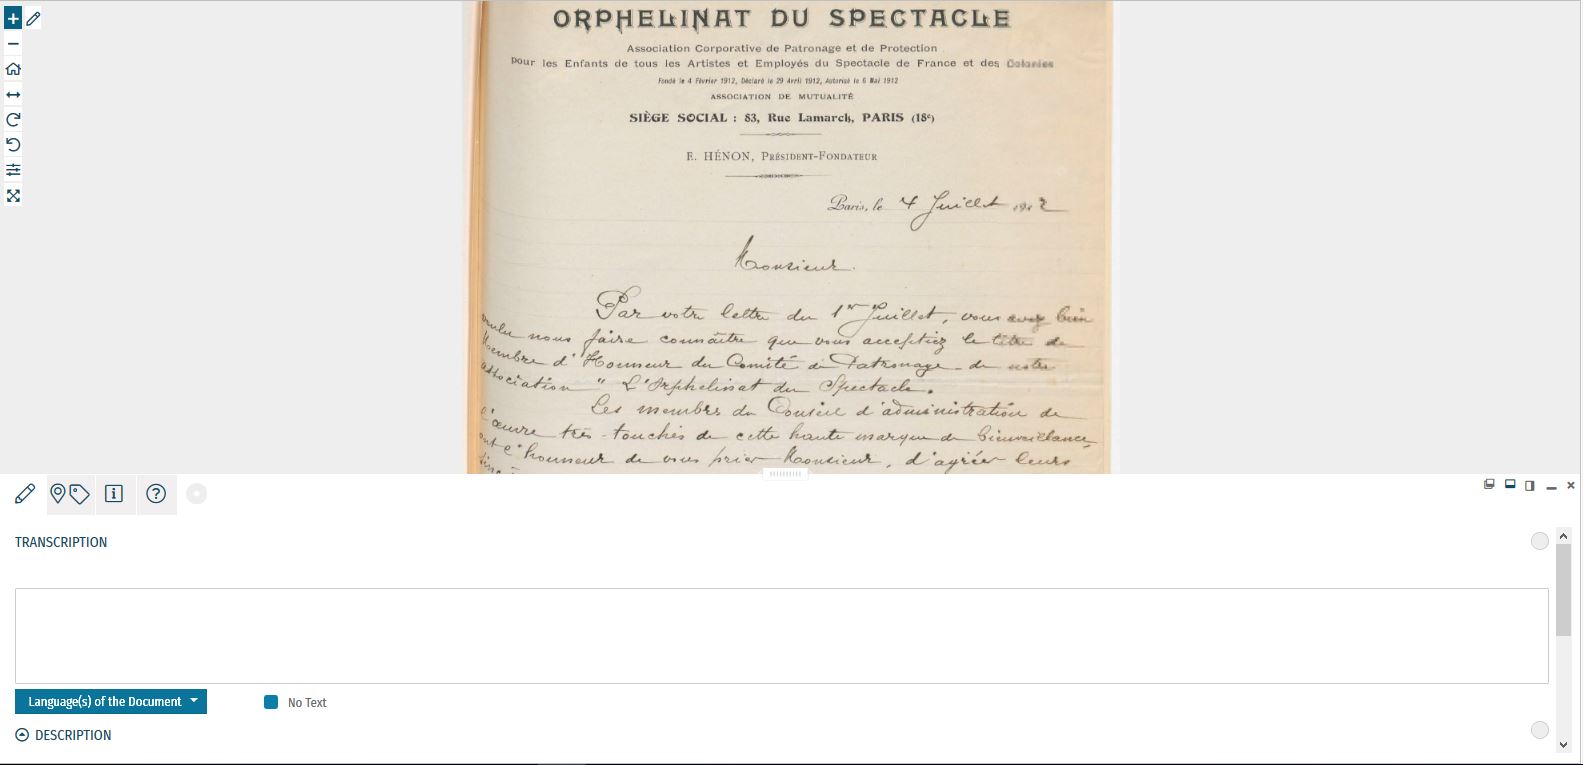 ORPHELINAT DU SPECTACLE
Association Corporative de Patronage et de Protection
pour les Enfants de tous les Artistes et Employés du Spectacle de France et des Colonies
Fondé le 4 Février 1912, Déclaré le 29 Avril 1912, Autorisé le 6 Mai 1912
ASSOCIATION DE MUTUALITÉ
SIÈGE SOCIAL : 83, Rue Lamarck, PARIS (18e)
E. HÉNON, PRÉSIDENT-FONDATEUR
Paris, le 4 Juillet 1912
Monsieur.
Par votre lettre du 1er Juillet, vous avez bien
voulu nous faire connaître que vous acceptiez le titre de
Membre d'Honneur du Comité de Patronage de notre
association " L'Orphelinat du Spectacle.
Les membres du Conseil d'administration de
l'œuvre très-touchés de cette haute marque de bienveillance,
ont l'honneur de vous prier Monsieur, d'agréer leurs
TRANSCRIPTION
Language(s) of the Document
No Text
DESCRIPTION